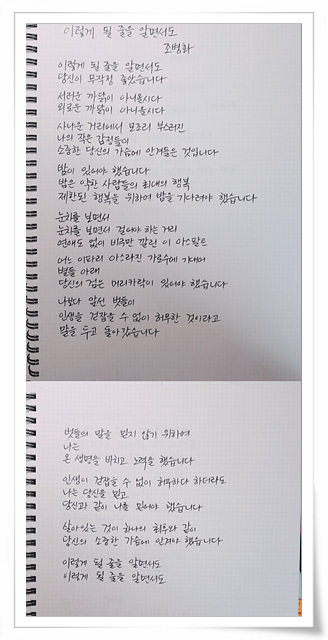 이렇게 될 줄을 알면서도
조병화
이렇게 될 줄을 알면서도
당신이 무작정 좋았습니다
서러운 까닭이 아니올시다
외로운 까닭이 아니올시다
사나운 거리에서 모조리 부스러진
나의 작은 감정들이
소중한 당신의 가슴에 안겨들은 것입니다
밤이 있어야 했습니다
밤은 약한 사람들의 최대의 행복
제한된 행복을 위하여 밤을 기다려야 했습니다
눈치를 보면서
눈치를 보면서 걸어야 하는 거리
연애도 없이 비극만 깔린 이 아스팔트
어느 이파리 아스라진 가로수에 기대어
별들 아래
당신의 검은 머리카락이 있어야 했습니다
나보다 앞선 벗들이
인생을 걷잡을 수 없이 허무한 것이라고
말을 두고 돌아갔습니다
벗들의 말을 믿지 않기 위하여
나는
온 생명을 바치고 노력을 했습니다
인생이 걷잡을 수 없이 허무하다 하더라도
나는 당신을 믿고
당신과 같이 나를 믿어야 했습니다
살아있는 것이 하나의 최후와 같이
당신의 소중한 가슴에 안겨야 했습니다
이렇게 될 줄을 알면서도
이렇게 될 줄을 알면서도